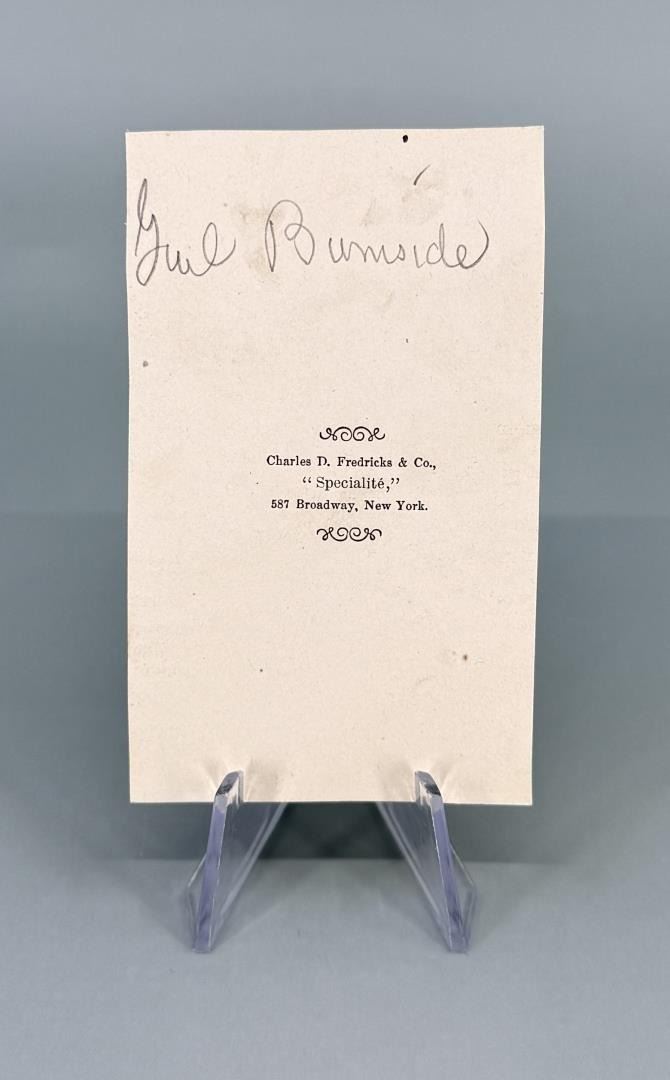 Genl Burnside
Charles D. Fredricks & Co.,
“Specialité,”
587 Broadway, New York.